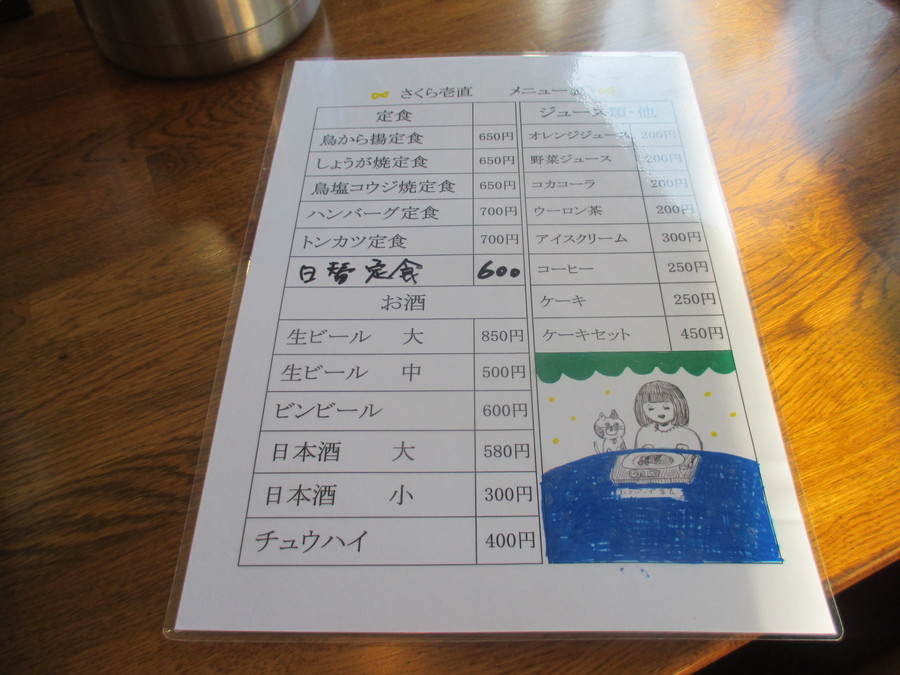 さくら壱直 メニュー
定食
鳥から揚定食 650円
しょうが焼定食 650円
鳥塩コウジ焼定食 650円
ハンバーグ定食 700円
トンカツ定食 700円
日替定食 600
お酒
生ビール 大 850円
生ビール 中 500円
ビンビール 600円
日本酒 大 580円
日本酒 小 300円
チュウハイ 400円
ジュース類・他
オレンジジュース 200円
野菜ジュース 200円
コカコーラ 200円
ウーロン茶 200円
アイスクリーム 300円
コーヒー 250円
ケーキ 250円
ケーキセット 450円